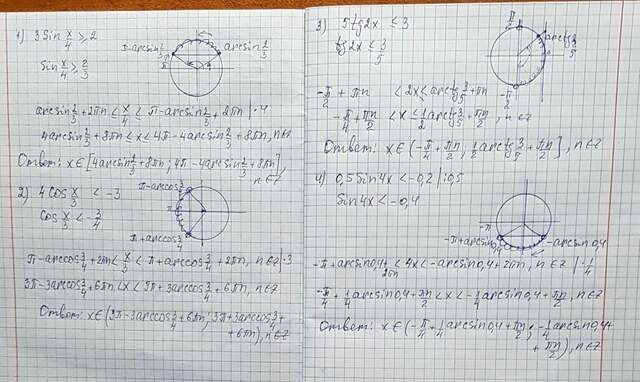 1) 3Sin x/4 ⩾ 2
Sin x/4 ⩾ 2/3
π-arcsin 2/3
arcsin 2/3
arcsin 2/3 + 2πn ≤ x/4 ≤ π - arcsin 2/3 + 2πn | · 4
4arcsin 2/3 + 8πn ≤ x ≤ 4π - 4arcsin 2/3 + 8πn, n∈Z
Ответ: x∈[4arcsin 2/3 + 8πn; 4π - 4arcsin 2/3 + 8πn],
n∈Z
2) 4cos x/3 < -3
Cos x/3 < -3/4
π-arccos 3/4
π
π+arccos 3/4
π-arccos 3/4 + 2πn < x/3 < π + arccos 3/4 + 2πn, n∈Z | · 3
3π - 3arccos 3/4 + 6πn < x < 3π + 3arccos 3/4 + 6πn, n∈Z
Ответ: x∈(3π - 3arccos 3/4 + 6πn; 3π + 3arccos 3/4 +
+ 6πn), n∈Z
3) 5tg2x ≤ 3
tg2x ≤ 3/5
π/2
arctg 3/5
-π/2
-π/2 + πn < 2x ≤ arctg 3/5 + πn
-π/4 + πn/2 < x ≤ 1/2 arctg 3/5 + πn/2, n∈Z
Ответ: x∈(-π/4 + πn/2; 1/2 arctg 3/5 + πn/2], n∈Z
4) 0,5Sin4x < -0,2 | :0,5
Sin4x < -0,4
-π
-π+arcsin0,4
-arcsin0,4
-π+arcsin0,4 + 2πn < 4x < -arcsin0,4 + 2πn, n∈Z | · 1/4
-π/4 + 1/4 arcsin0,4 + πn/2 < x < -1/4 arcsin0,4 + πn/2, n∈Z
Ответ: x∈(-π/4 + 1/4 arcsin0,4 + πn/2; -1/4 arcsin0,4 +
+ πn/2), n∈Z